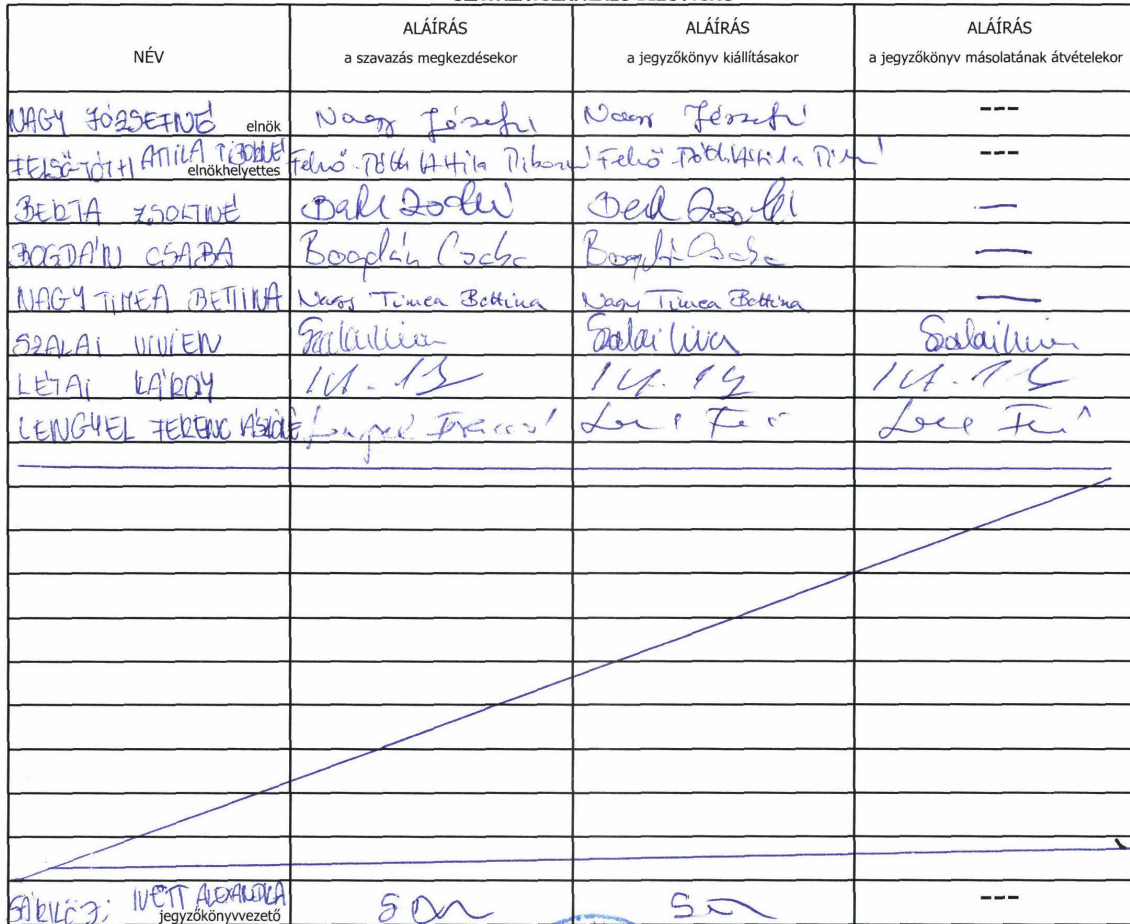 NÉV
ALÁÍRÁS
a szavazás megkezdésekor
ALÁÍRÁS
a jegyzőkönyv kiállításakor
ALÁÍRÁS
a jegyzőkönyv másolatának átvételekor
NAGY JÓZSEFNÉ elnök Nagy Józsefné Nagy Józsefné ---
FELSŐ-TÓTH ATTILA TIBORNÉ elnökhelyettes Felső-Tóth Attila Tiborné Felső-Tóth Attila ---
BERTA ZSOLTNÉ —
BOGDÁN CSABA Bogdán Csaba Bogdán Csaba —
NAGY TIMEA BETTINA Nagy Timea Bettina Nagy Timea Bettina —
SZALAI VIVIEN Szalai Vivien Szalai Vivien Szalai Vivien
LÉTAI KÁROLY
LENGYEL FERENC LÁSZLÓNÉ
IVETT ALEXANDRA
jegyzőkönyvvezető ---